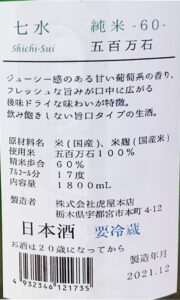 七水 純米 -60-
Shichi-Sui 五百万石
ジューシー感のある甘い葡萄系の香り、
フレッシュな旨みが口中に広がる
後味ドライな味わいが特徴。
飲み飽きしない旨口タイプの生酒。
原材料名 米(国産)、米麹(国産米)
使用米 五百万石100%
精米歩合 60%
アルコール分 17度
内容量 1800mL
製造者 株式会社虎屋本店
栃木県宇都宮市本町4-12
日本酒 要冷蔵
お酒は20歳になってから
製造年月
2021.12
4932346121735